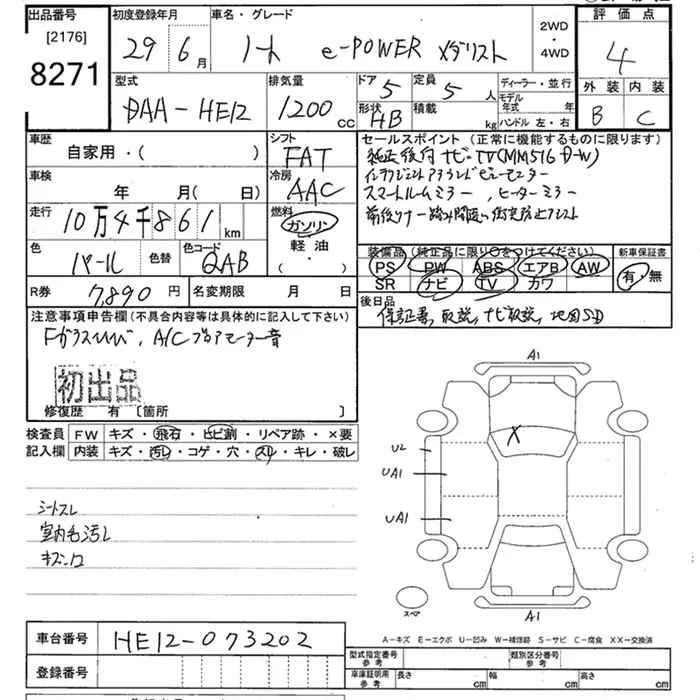 出品番号
[2176]
8271
初度登録年月
29 6月
車名・グレード
ノート e-POWER メダリスト
2WD
・
4WD
評価点
4
外装 内装
B C
型式
DAA-HE12
排気量
1200cc
ドア 5
形状 HB
定員 5人
積載 kg
ディーラー・並行
モデル年式 年
ハンドル 左・右
車歴
自家用・( )
車検
年 月( 日)
走行
10万4千861km
色
パール
色替
色コード
QAB
シフト
FAT
冷房
AAC
燃料
ガソリン
軽油
( ・ )
セールスポイント(正常に機能するものに限ります)
純正後付 ナビ・TV(MM516D-W)
インテリジェント アラウンドビューモニター
スマートルームミラー, ヒーターミラー
前後ソナー 踏み間違い衝突防止アシスト
装備品(純正品に限り○をつけてください)
PS PW ABS エアB AW
SR ナビ TV カワ
新車保証書
有・無
R券 7,890円
名変期限 月 日
後日品
保証書, 取説, ナビ取説, 地図SD
注意事項申告欄(不具合内容等は具体的に記入して下さい)
Fガラスひび, A/Cブロアモーター音
初出品
修復歴 有 〔箇所 〕
検査員 FW キズ・飛石・ヒビ割・リペア跡・×要
記入欄 内装 キズ・汚れ・コゲ・穴・スレ・キレ・破レ
シートスレ
室内毛汚れ
A1
X
U2
UA1
UA1
スペア
A1
A-キズ E-エクボ U-凹み W-補修跡 S-サビ C-腐食 XX-交換済
車台番号 HE12-073202
登録番号
型式指定番号
参考
類別区分番号
参考
車庫証明用
参考
長さ cm 幅 cm 高さ cm